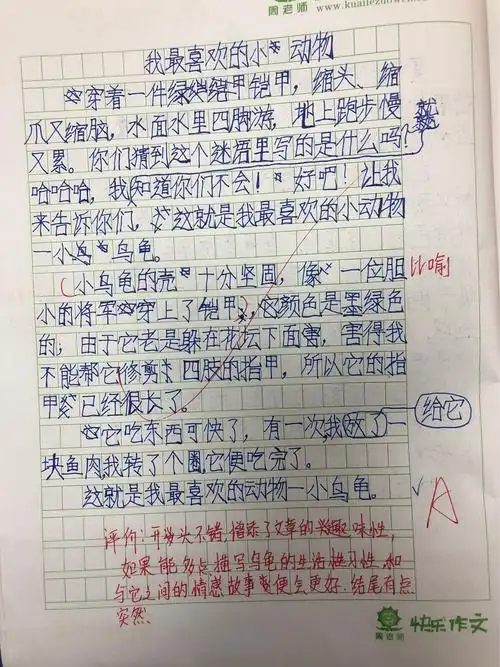 周老师
www.kuailezuowen
我最喜欢的小动物
穿着一件绿铠甲,缩头、缩
爪又缩脑,水面水里四脚游,地上跑步慢
又累。你们猜到这个迷语里写的是什么吗?
哈哈哈,我知道你们不会!好吧!让我
来告诉你们,这就是我最喜欢的小动物
一小乌龟。
小乌龟的壳十分坚固,像一位胆
比喻
小的将军穿上了铠甲,它颜色是墨绿色
的;由于它老是躲在花坛下面害,害得我
不能帮它修剪四肢的指甲,所以它的指
甲已经很长了。
它吃东西可快了,有一次,我放了一
给它
块鱼肉,我转了个圈,它便吃完了。
这就是我最喜欢的动物一小乌龟。
A
评价:开头不错,增添了文章的趣味性,
如果能多点描写乌龟的生活习性和
与它之间的情感故事便会更好.结尾有点
突然
周老师
快乐作文